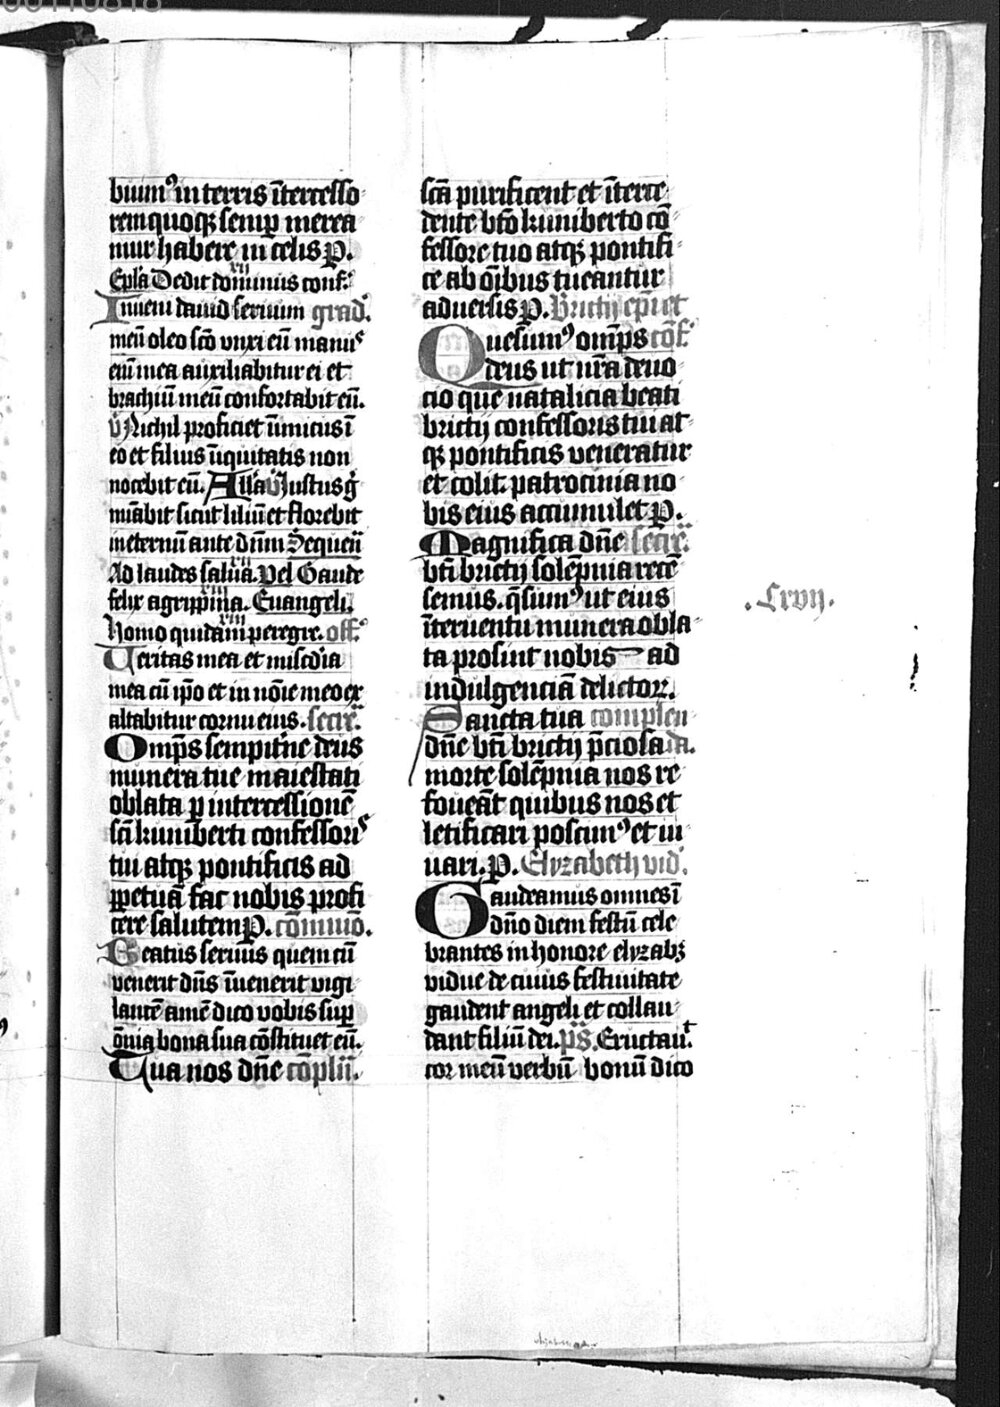 buim⁹ in terris ītercesso
rem quoqꝫ semꝑ merea
mur habere in celis P.
Epła Dedit dominus conf.
xij
Inueni dauid seruum grad.
meū oleo scō vnxi eū manus
eiū mea auxiliabitur ei et
brachiū meū confortabit eū.
v Nichil proficiet inimicus ī
eo et filius iniquitatis non
nocebit eū. Alla v Iustus g̾
minabit sicut liliū et florebit
in eternū ante dnm̄ Sequen
Ad laudes salua. Vel Gaude
felix agrippina. Euangeli.
Homo quidam peregre. off.
Veritas mea et misc̄dia
mea cū ipō et in nōie meo ex
altabitur cornu eius. secre.
Omp̄s sempit̾ne deus
munera tue maiestati
oblata ꝑ intercessionē
scī kuniberti confessoris
tui atqꝫ pontificis ad
ꝑpetuā fac nobis profi
cere salutem P. cōmuō.
Beatus seruus quem cū
venerit dn̄s inuenerit vigi
lantē amē dico vobis suꝑ
om̄ia bona sua cōstituet eū.
Tua nos dn̄e cōpliī.
scā purificent et īterce
dente bt̄o kuniberto cō
fessore tuo atqꝫ pontifi
ce ab oībus tueantur
aduersis P. Brictij ep̄i et
Quesum⁹ omp̄s cōf.
deus ut nr̄a deuo
cio que natalicia beati
brictij confessoris tui at
qꝫ pontificis veneratur
et colit. patrocinia no
bis eius accumulet P.
Magnifica dn̄e secre.
bt̄i brictij solēpnia rece
semus. qs̄um⁹ ut eius
īteruentu munera obla
ta prosint nobis ad
indulgenciā delictoꝝ.
Sancta tua complen
dn̄e bt̄i brictij p̄ciosa da.
morte solēpnia nos re
foueāt quibus nos et
letificari poscim⁹ et iu
uari. P. Elyzabeth vid.
Gaudeamus omnes ī
dn̄o diem festū cele
brantes in honore elyzabꝫ
vidue de cuius festiuitate
gaudent angeli et collau
dant filiū dei. p̄s. Eructauit
cor meū verbū bonū dico
.Lxvij.